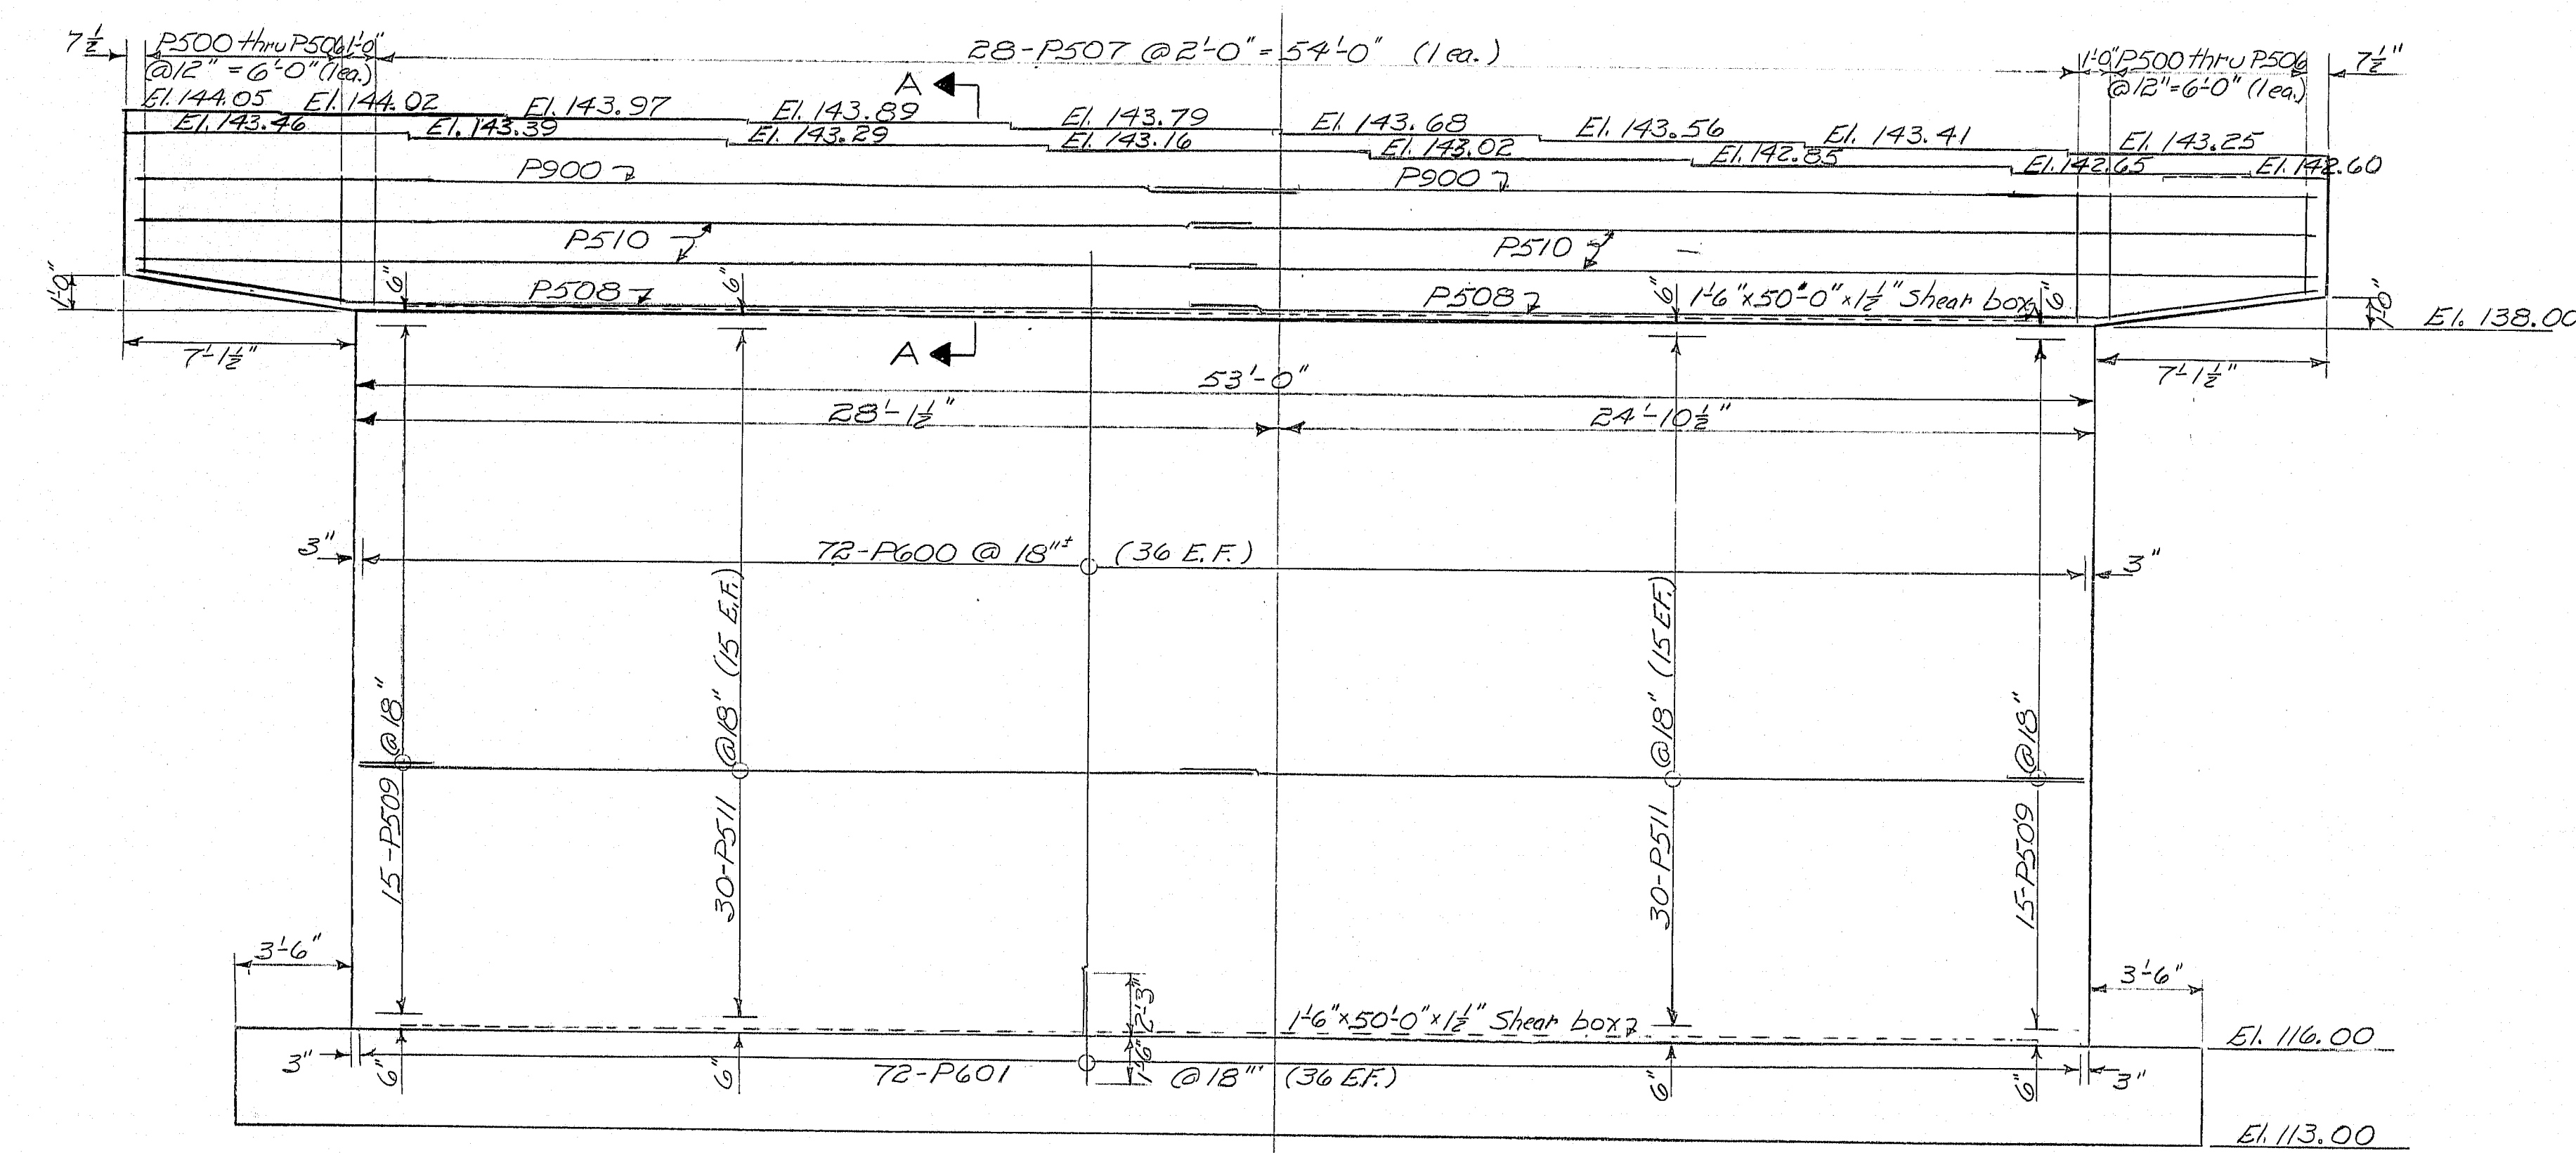 7 1/2
P500 thru P506
1'-0"
@12" = 6'-0" (1ea.)
28-P507 @ 2'-0" = 54'-0" (1 ea.)
1'-0"
P500 thru P506
7 1/2"
@12"=6'-0" (1ea.)
A
El. 144.05
El. 144.02
El. 143.97
El. 143.89
El. 143.79
El. 143.68
El. 143.56
El. 143.41
El. 143.25
El. 143.46
El. 143.39
El. 143.29
El. 143.16
El. 143.02
El. 142.85
El. 142.65
El. 142.60
P900
P900
P510
P510
1'-0"
6"
P508
6"
P508
6"
1'-6"x50'-0"x1 1/2" Shear box
6"
1'-0"
El. 138.00
7'-1 1/2"
A
7'-1 1/2"
53'-0"
28'-1 1/2"
24'-10 1/2"
3"
72-P600 @ 18"± (36 E.F.)
3"
15-P509 @ 18"
30-P511 @18" (15 E.F.)
30-P511 @18" (15 EF.)
15-P509 @18"
3'-6"
3'-6"
2'-3"
1'-6"x50'-0"x1 1/2" Shear box
El. 116.00
3"
6"
6"
72-P601 @ 18" (36 E.F.)
1'-6"
6"
6"
3"
El. 113.00